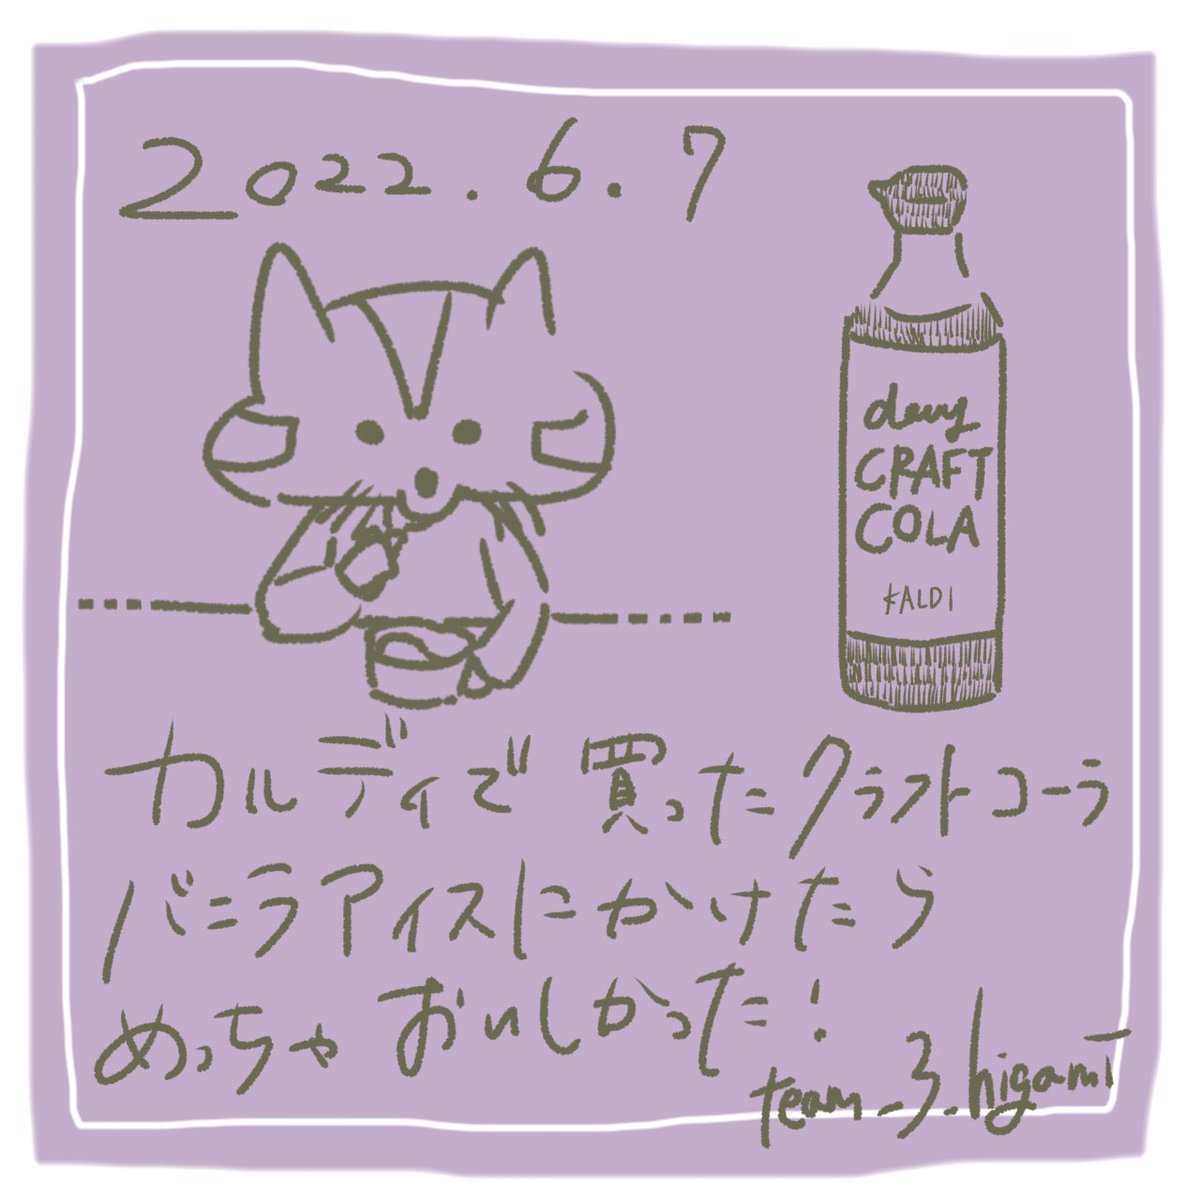 2022.6.7
devy
CRAFT
COLA
KALDI
カルディで買ったクラフトコーラ
バニラアイスにかけたら
めっちゃおいしかった!
team_3_higami